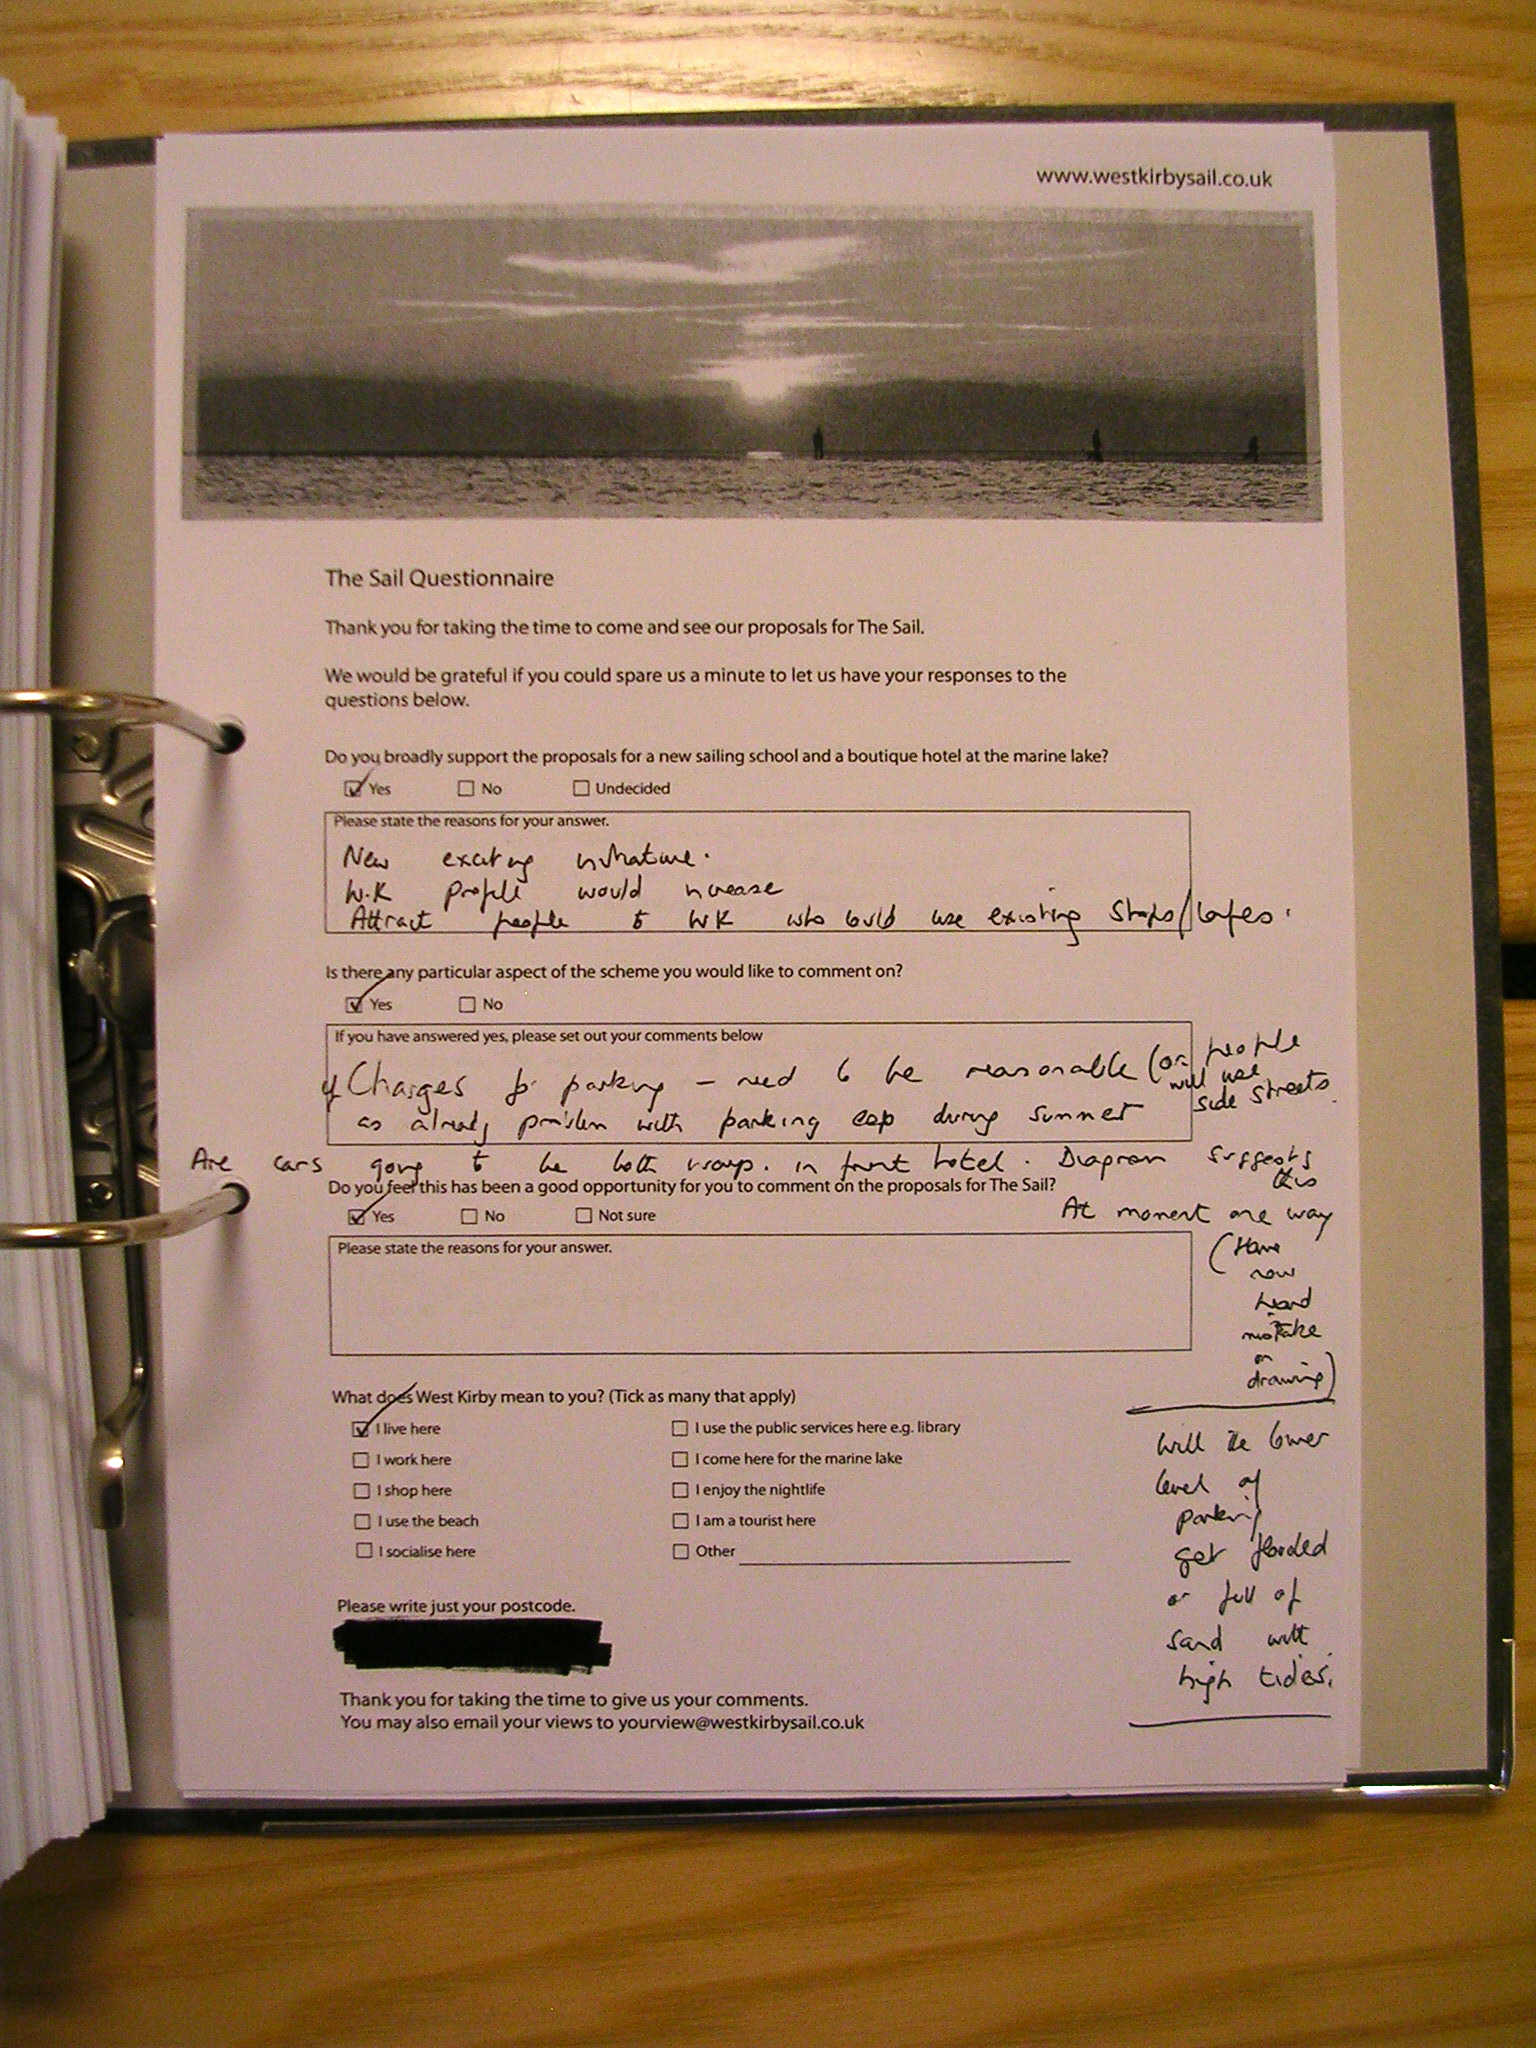 www.westkirbysail.co.uk
The Sail Questionnaire
Thank you for taking the time to come and see our proposals for The Sail.
We would be grateful if you could spare us a minute to let us have your responses to the
questions below.
Do you broadly support the proposals for a new sailing school and a boutique hotel at the marine lake?
Yes No Undecided
Please state the reasons for your answer.
New exciting initiative.
W.K profile would increase
Attract people to WK who could use existing shops/cafes.
Is there any particular aspect of the scheme you would like to comment on?
Yes No
If you have answered yes, please set out your comments below
Charges for parking - need to be reasonable (or people
will use
side streets.
as already problem with parking esp during summer
Are cars going to be both ways. in front hotel. Diagram suggests
this
Do you feel this has been a good opportunity for you to comment on the proposals for The Sail?
Yes No Not sure
At moment one way
(Have
now
heard
mistake
on
drawing)
Please state the reasons for your answer.
What does West Kirby mean to you? (Tick as many that apply)
I live here I use the public services here e.g. library
I work here I come here for the marine lake
I shop here I enjoy the nightlife
I use the beach I am a tourist here
I socialise here Other
Will the lower
level of
parking
get flooded
or full of
sand with
high tides.
Please write just your postcode.
Thank you for taking the time to give us your comments.
You may also email your views to yourview@westkirbysail.co.uk